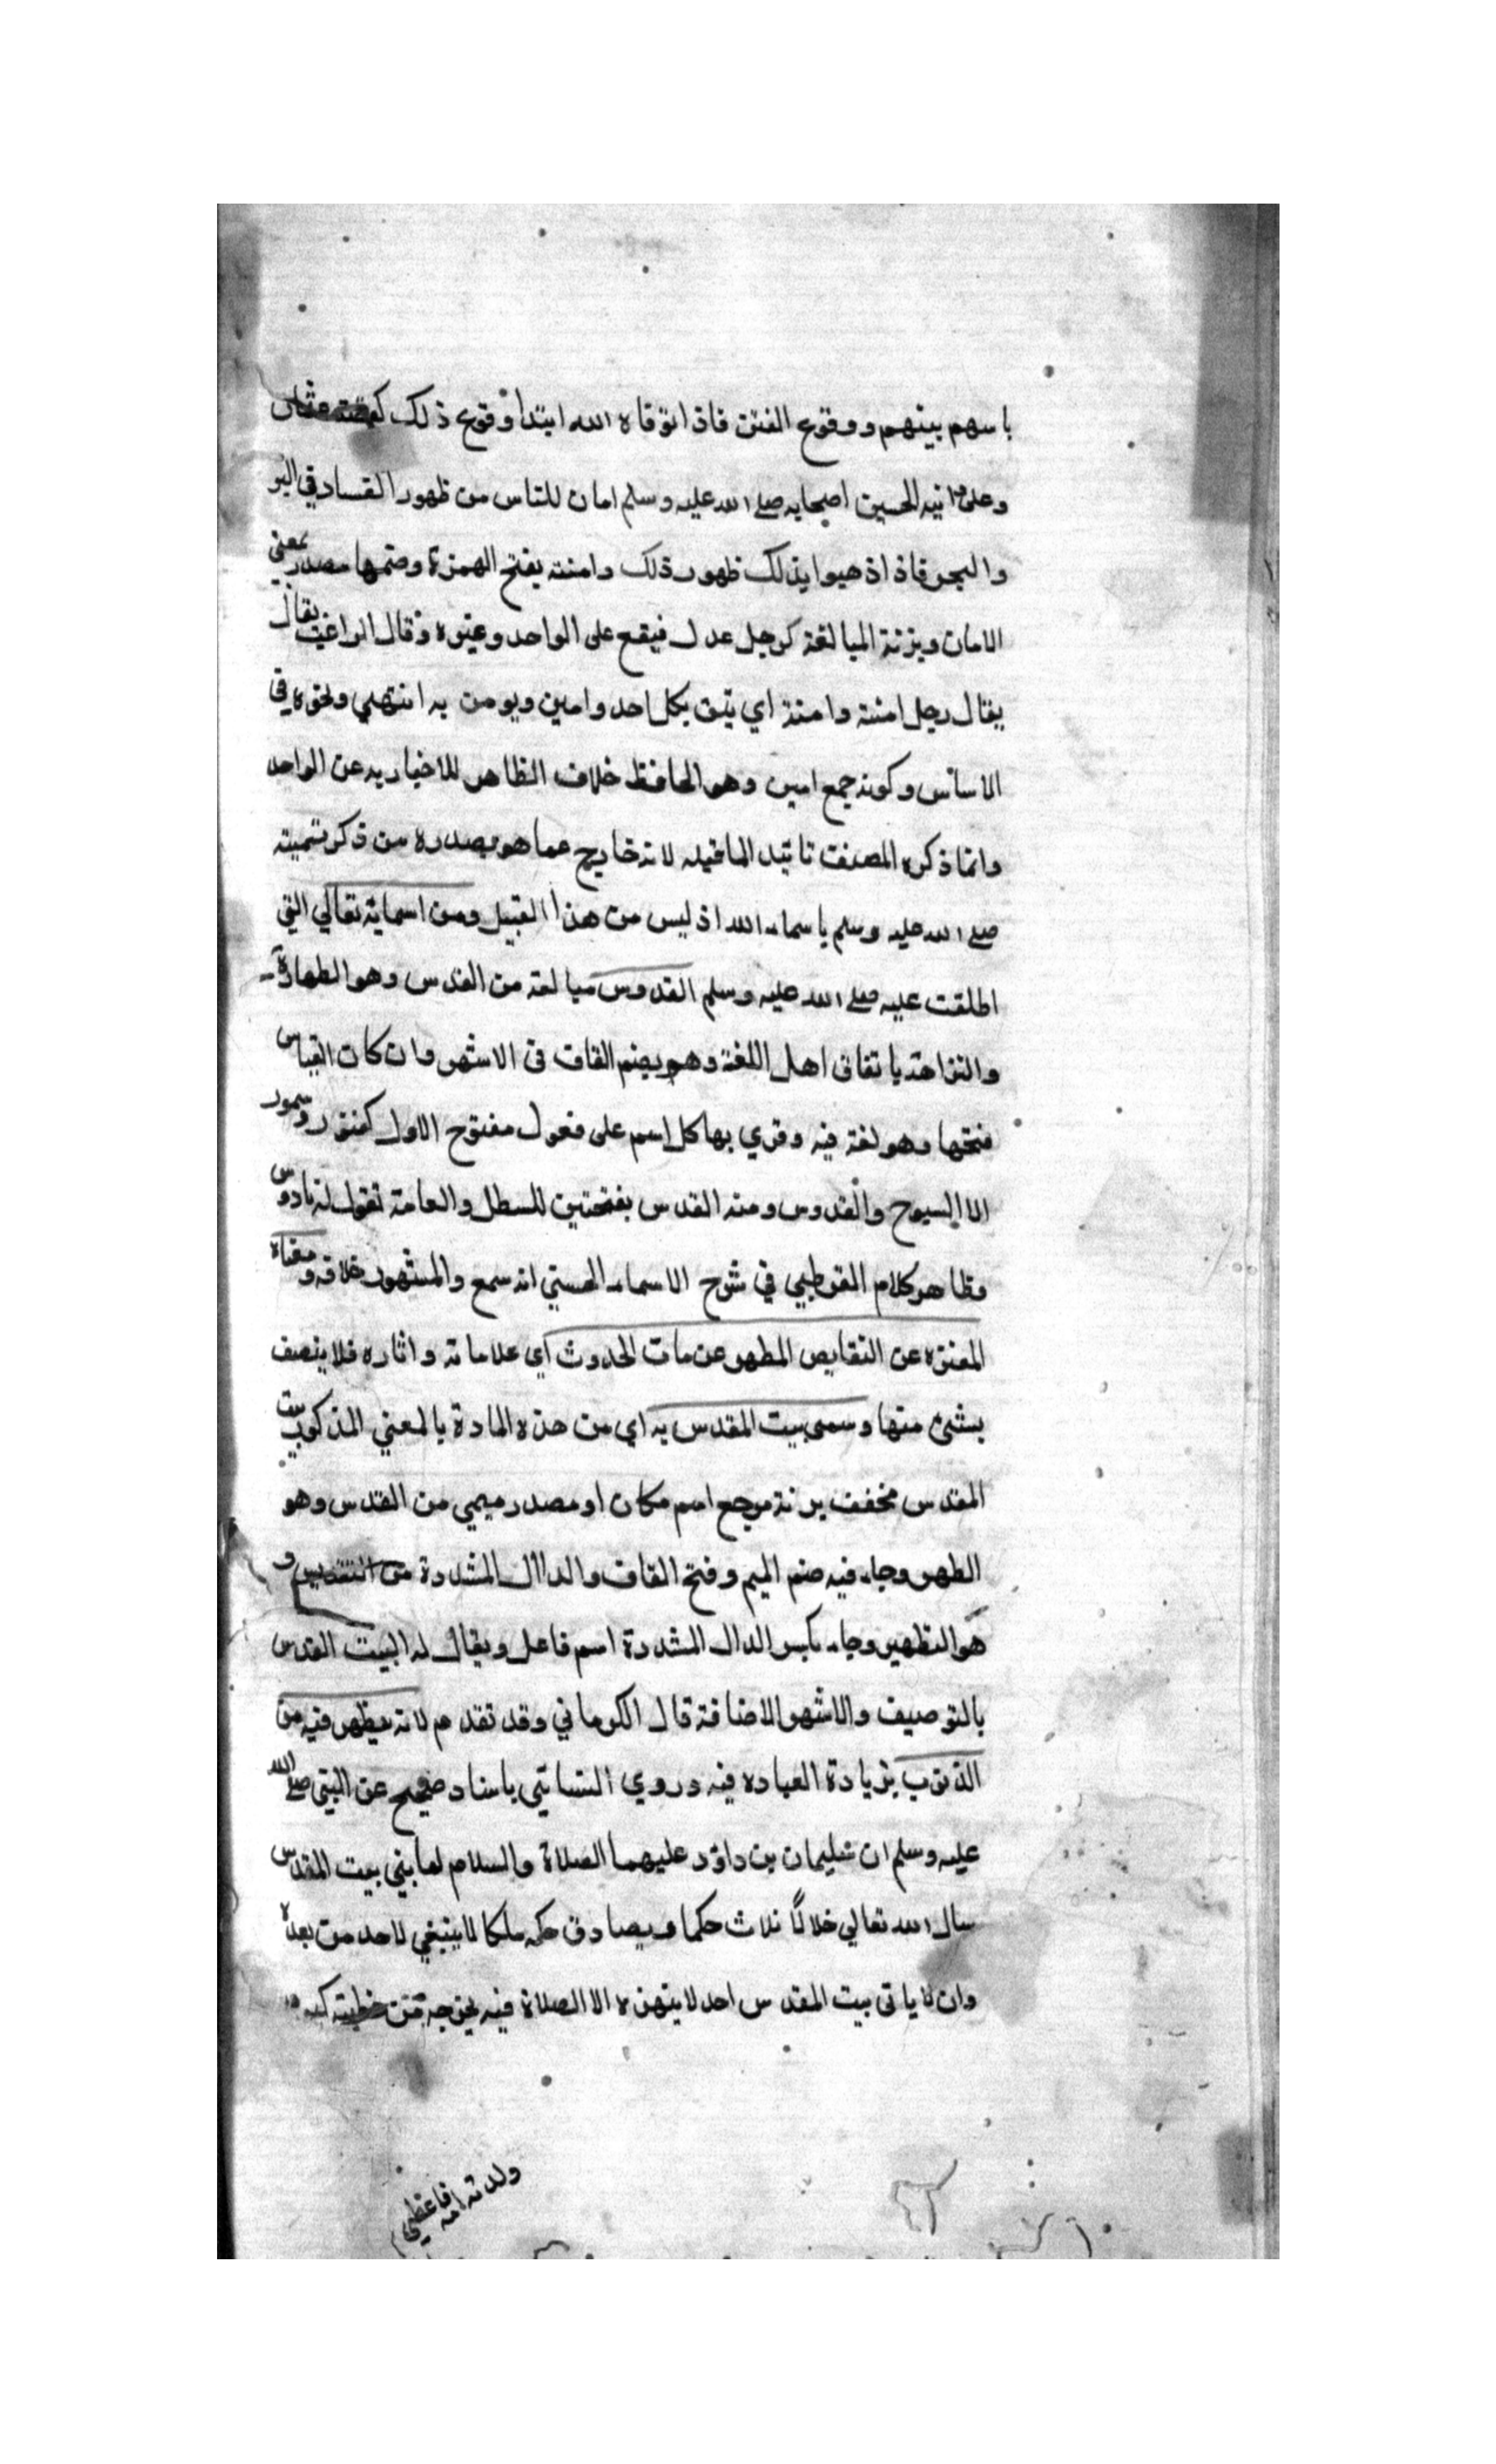 باسهم بينهم ووقوع الفتن فاذا توقاه الله ابتدأ وقوع ذلك كقصة عثمان
وعلى وابنيه الحسين اصحابه صلى الله عليه وسلم امان للناس من ظهور الفساد في البر
والبحر فاذا ذهبوا بذلك ظهور ذلك وامنة بفتح الهمزة وضمها مصدر بمعنى
الامان وبزنة المبالغة كرجل عدل فيقع على الواحد وغيره وقال الراغب يقال
يقال رجل امنة وامنة اي يثق بكل احد وامين ويومن به انتهى ونحوه في
الاساس وكونه جمع امين وهو الحافظ خلاف الظاهر للاخبار به عن الواحد
وانما ذكره المصنف تاييد لما قبله لانه خارج عما هو بصدره من ذكر تسميته
صلى الله عليه وسلم باسماء الله اذ ليس من هذا القبيل ومن اسمايه تعالي التي
اطلقت عليه صلى الله عليه وسلم القدوس مبالغة من القدس وهو الطهارة
والنزاهة باتفاق اهل اللغة وهو بضم القاف في الاشهر وان كان القياس
فتحها وهو لغة فيه وقري بها كل اسم على فعول مفتوح الاول كتنور وسمور
الا السبوح والقدوس ومنه القدس بفتحتين للسطل والعامة تقول له قادوس
وظاهر كلام القرطبي في شرح الاسماء الحسني انه سمع والمشهور خلافه ومعناه
المنزه عن النقايص المطهر عن مات الحدوث اي علاماته واثاره فلا يتصف
بشئ منها وسمى بيت المقدس به اي من هذه المادة بالمعني المذكور بيت
المقدس مخفف بزنة مرجع اسم مكان او مصدر ميمي من القدس وهو
الطهر وجاء فيه ضم الميم وفتح القاف والدال المشددة من التقديس و
هو التطهير وجاء بكسر الدال المشددة اسم فاعل ويقال له البيت القدس
بالتوصيف والاشهر الاضافة قال الكرماني وقد تقدم م لانه يطهر فيه من
الذنوب بزيادة العباده فيه وروي النسائي باسناد صحيح عن النبي صلى الله
عليه وسلم ان سليمان بن داؤد عليهما الصلاة والسلام لما بني بيت المقدس
سال الله تعالي خلالًا ثلاث حكما يصادق حكمه ملكا لا ينبغي لاحد من بعده
وان لا ياتى بيت المقدس احد لا ينهزه الا الصلاة فيه يخرجه من خطيته كيوم
ولدته امه فاعطي